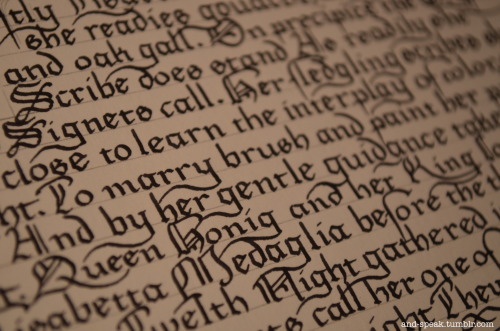 She readies
and oak gall. On precipice
Scribe does stand As readily she
Signets call. Her fledgling scribes
close to learn the interplay of color
ht. To marry brush and paint her
And by her gentle guidance take
t. Queen Honig and her King
abetta Medaglia before the
elfth Night gathered
call her one of
ight They
and-speak.tumblr.com